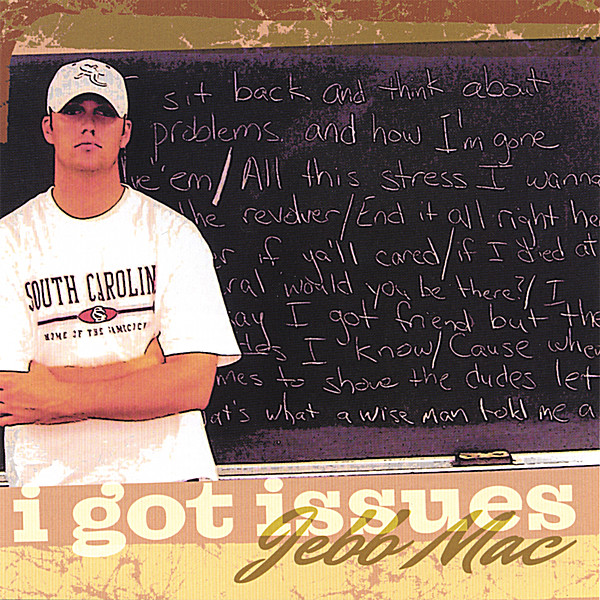 sit back and think about
problems. and how I'm gone
've 'em/All this stress I wanna
the revolver/End it all right he
r if ya'll cared/if I died at
ral would you be there?/I
ay I got friend but the
des I know/Cause when
mes to shove the dudes let
at's what a wise man told me a
SOUTH CAROLIN
HOME OF THE GAMECOC
i got issues
Jebb Mac